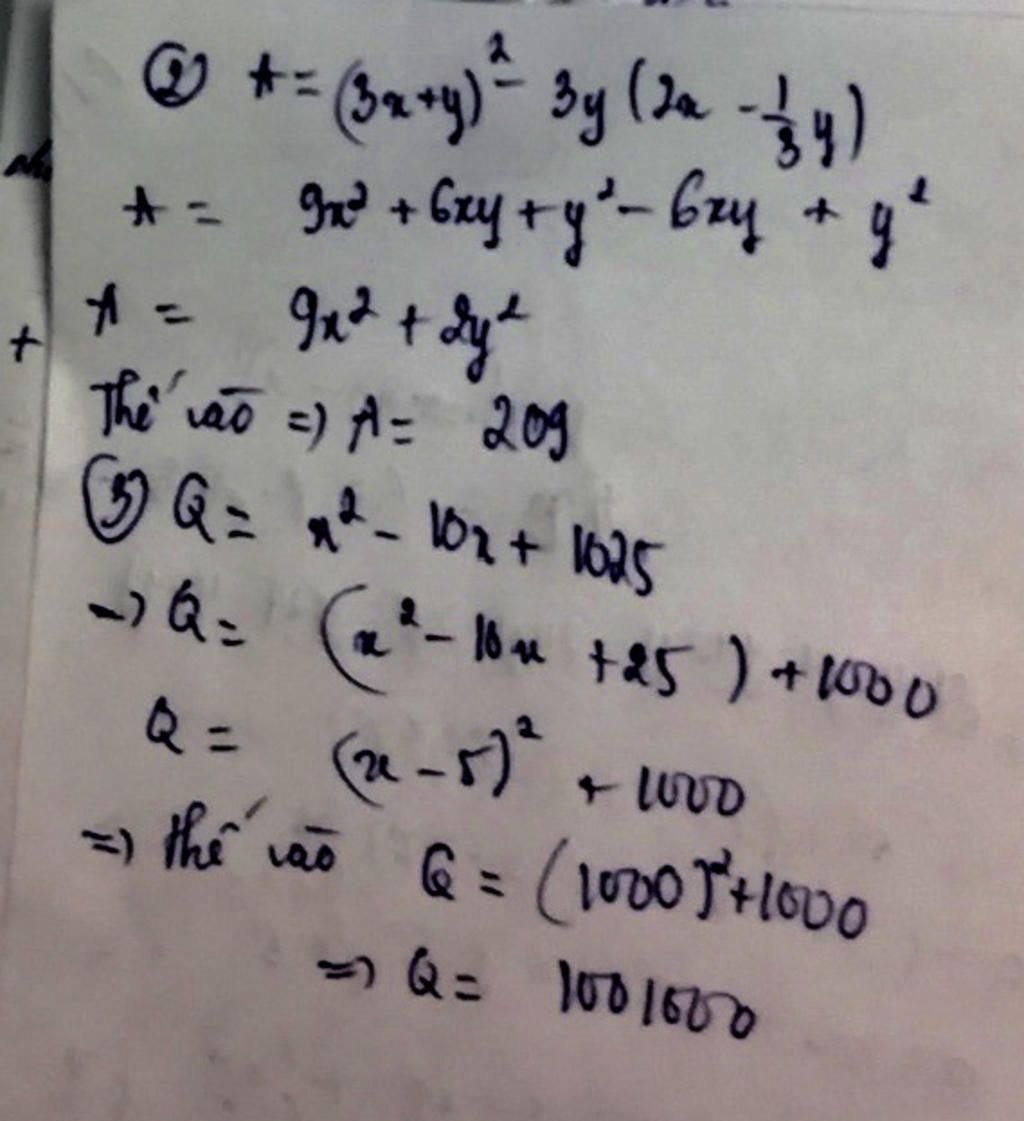 ② A = (3x+y)² - 3y (2x - 1/3 y)
A = 9x² + 6xy + y² - 6xy + y²
A = 9x² + 2y²
Thế vào => A = 209
③ Q = x² - 10x + 1025
-> Q = (x² - 10x + 25) + 1000
Q = (x - 5)² + 1000
=> thế vào Q = (1000)² + 1000
=> Q = 1001000